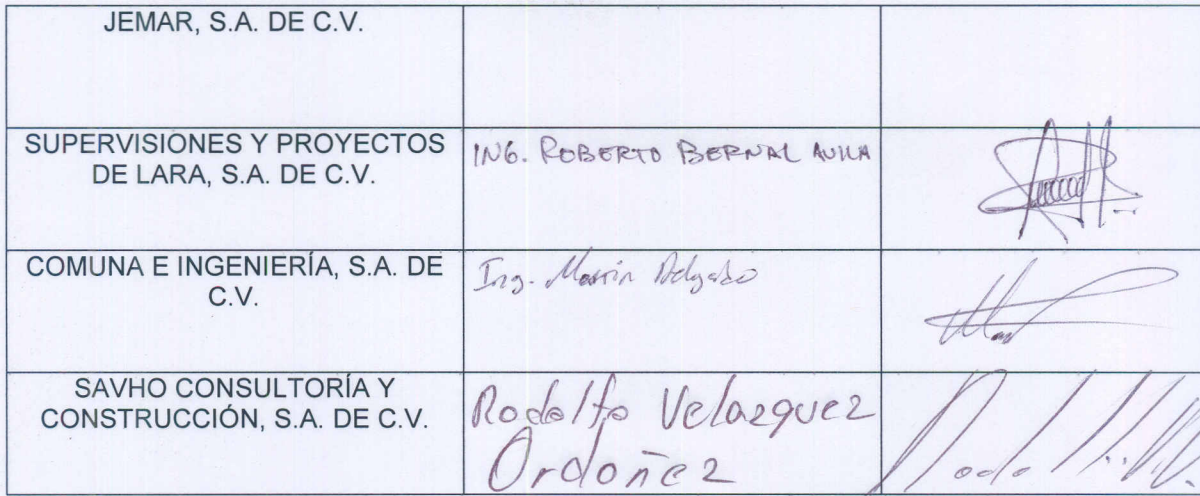 JEMAR, S.A. DE C.V.
SUPERVISIONES Y PROYECTOS
DE LARA, S.A. DE C.V.
ING. ROBERTO BERNAL AVILA
COMUNA E INGENIERÍA, S.A. DE
C.V.
Ing. Martín Delgado
SAVHO CONSULTORÍA Y
CONSTRUCCIÓN, S.A. DE C.V.
Rodolfo Velazquez
Ordoñez